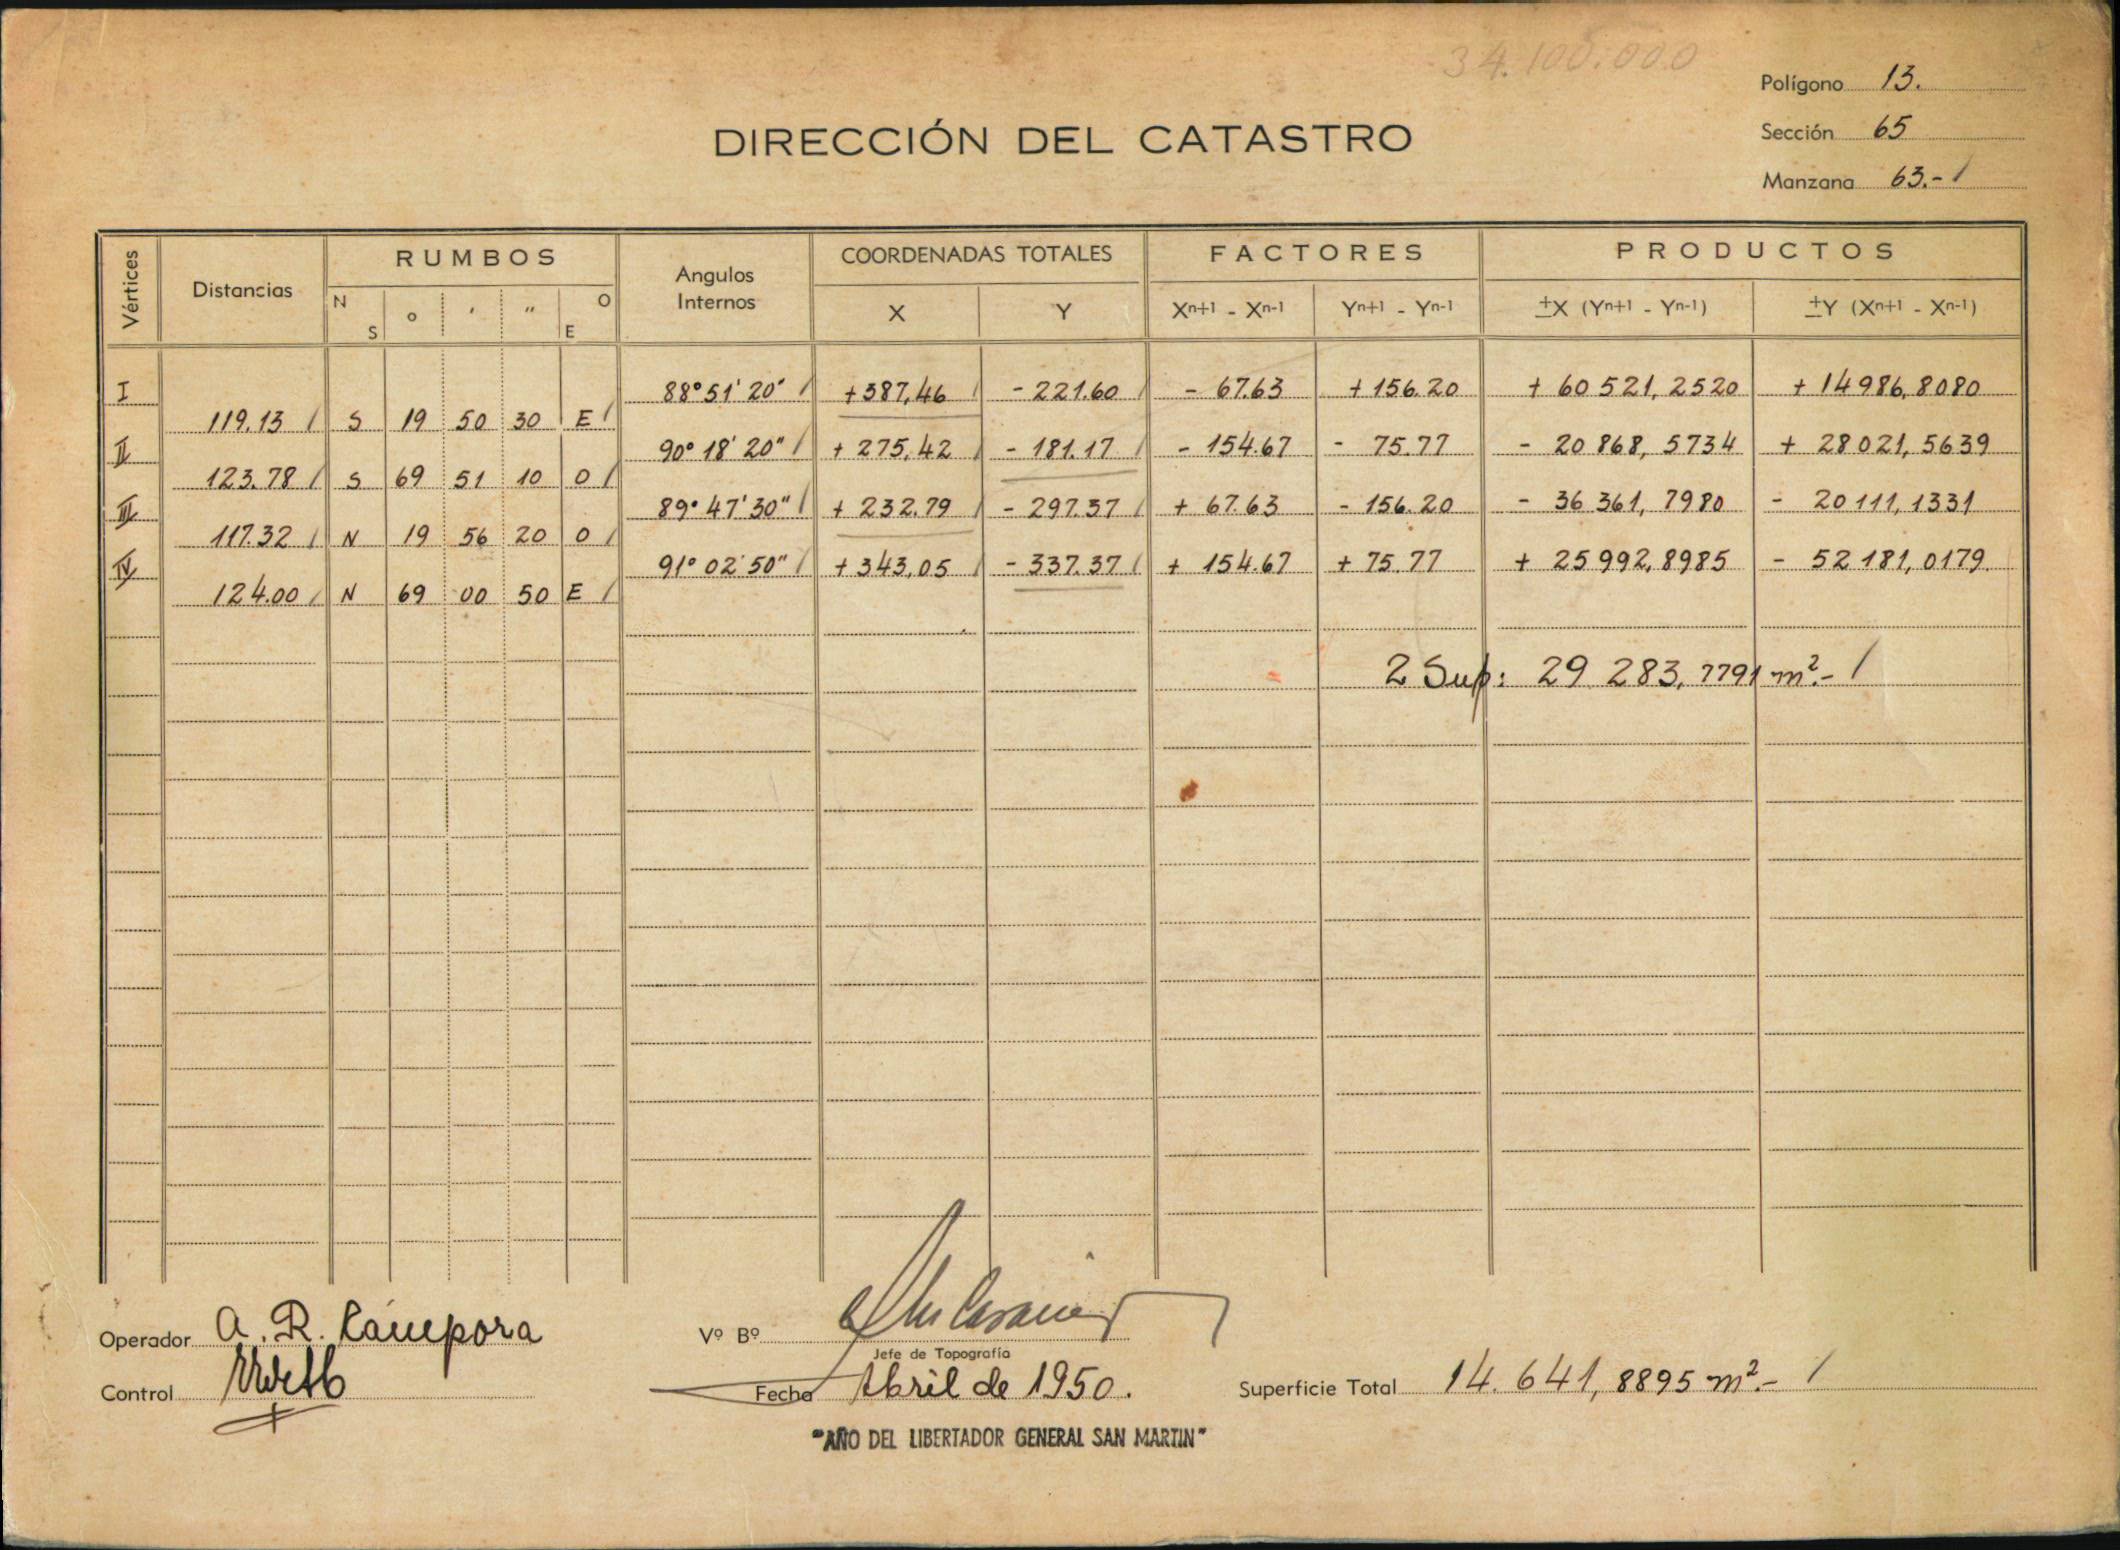 34.100.000
Polígono 13.
DIRECCIÓN DEL CATASTRO
Sección 65
Manzana 63.- /
Vértices Distancias RUMBOS Angulos Internos COORDENADAS TOTALES FACTORES PRODUCTOS
N S o ' " O E X Y Xn+1 - Xn-1 Yn+1 - Yn-1 ±X (Yn+1 - Yn-1) ±Y (Xn+1 - Xn-1)
I 88°51'20" / +387,46 / - 221.60 / - 67.63 + 156.20 + 60 521, 2520 + 14986,8080
119.13 / S 19 50 30 E /
II 90° 18' 20" / + 275,42 / - 181.17 / - 154.67 - 75.77 - 20 868, 5734 + 28 021, 5639
123.78 / S 69 51 10 O /
III 89° 47' 30" / + 232.79 / - 297.37 / + 67.63 - 156.20 - 36 361, 7980 - 20 111, 1331
117.32 / N 19 56 20 O /
IV 91° 02' 50" / + 343,05 / - 337.37 / + 154.67 + 75.77 + 25 992,8985 - 52 181, 0179
124.00 / N 69 00 50 E /
2 Sup: 29 283, 7791 m².- /
Operador A. R. Cámpora
Vº Bº
Jefe de Topografía
Control
Fecha Abril de 1950.
Superficie Total 14. 641, 8895 m².- /
"AÑO DEL LIBERTADOR GENERAL SAN MARTIN"